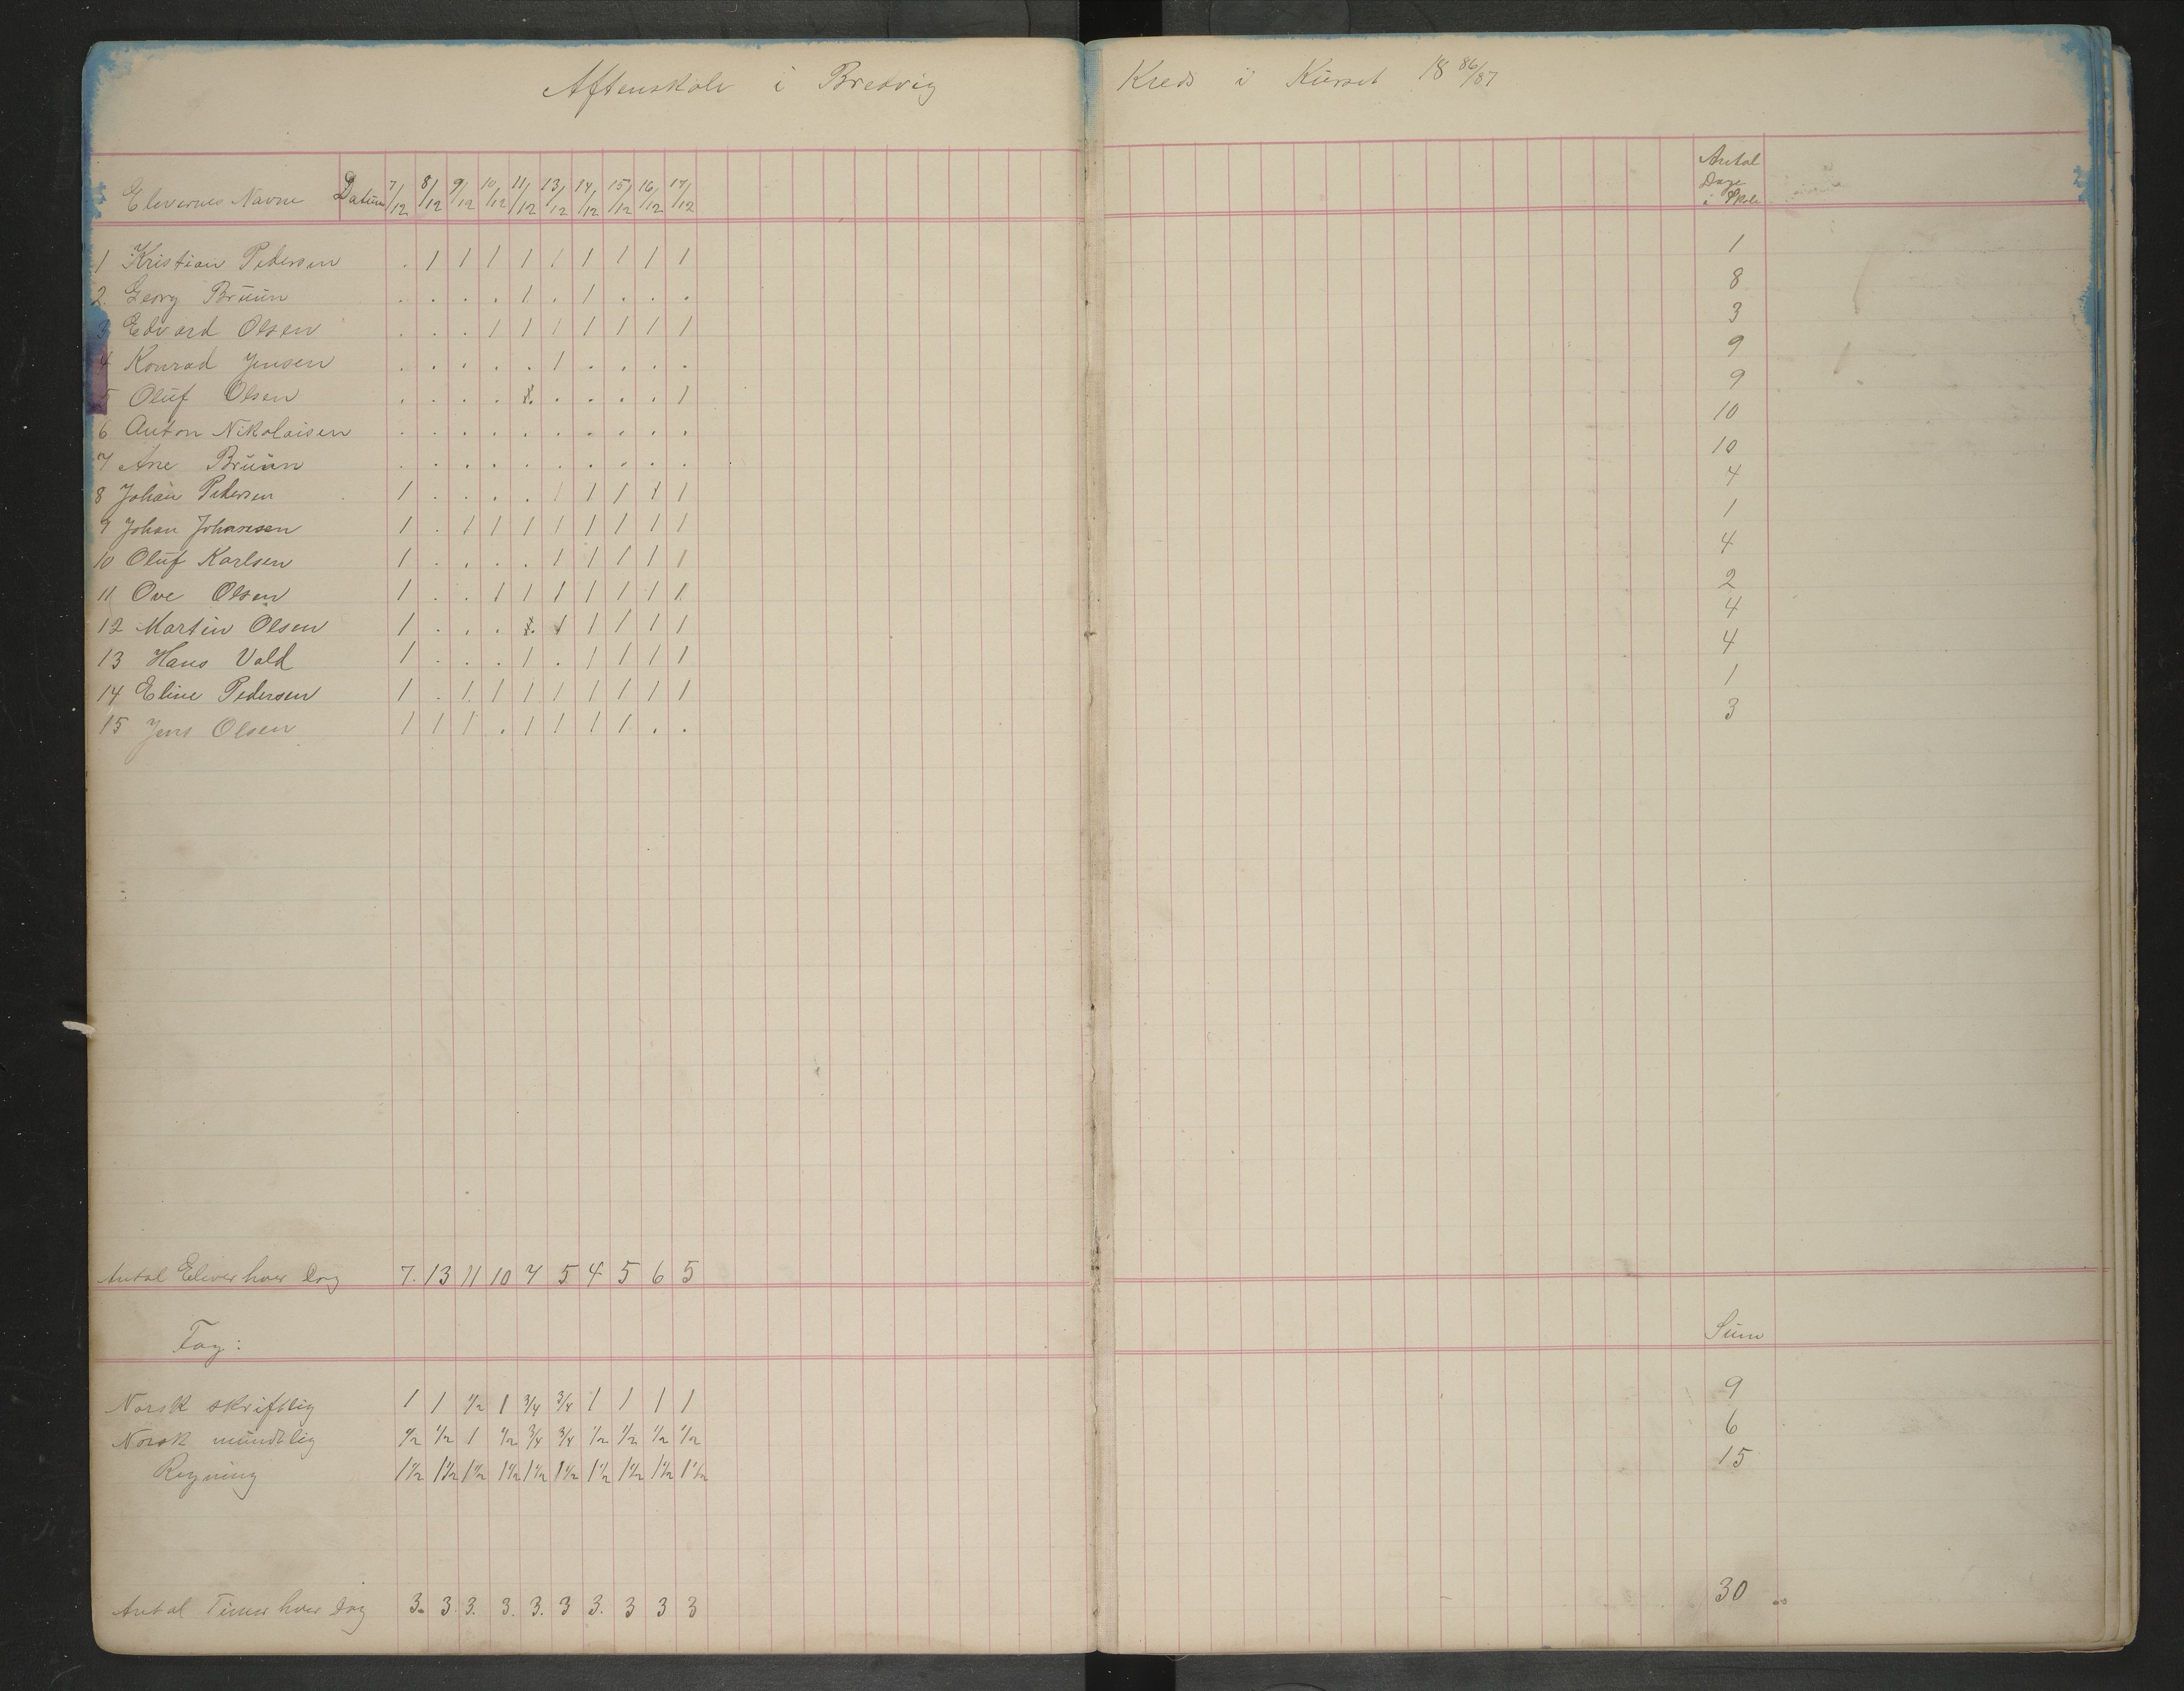 Aftenskole i Bredvig Kreds i Kurset 18 86/87
Elevernes Navne Datum 7/12 8/12 9/12 10/12 11/12 13/12 14/12 15/12 16/12 17/12 Antal Dage i Skole
1 Kristian Pedersen . 1 1 1 1 1 1 1 1 1 1
2 Georg Bruun . . . . 1 . 1 . . . 8
3 Edvard Olsen . . . 1 1 1 1 1 1 1 3
4 Konrad Jensen . . . . . 1 . . . . 9
5 Oluf Olsen . . . . . . . . . 1 9
6 Anton Nikolaisen . . . . . . . . . . 10
7 Ane Bruun . . . . . . . . . . 10
8 Johan Pedersen 1 . . . . 1 1 1 1 1 4
9 Johan Johansen 1 . 1 1 1 1 1 1 1 1 1
10 Oluf Karlsen 1 . . . . 1 1 1 1 1 4
11 Ove Olsen 1 . . 1 1 1 1 1 1 1 2
12 Martin Olsen 1 . . . . 1 1 1 1 1 4
13 Hans Vold 1 . . . 1 . 1 1 1 1 4
14 Eline Pedersen 1 . 1 1 1 1 1 1 1 1 1
15 Jens Olsen 1 1 1 . 1 1 1 1 . . 3
Antal Elever hver Dag 7. 13 11 10 7 5 4 5 6 5
Fag: Sum
Norsk skriftlig 1 1 1/2 1 3/4 3/4 1 1 1 1 9
Norsk mundtlig 1/2 1/2 1 1/2 3/4 3/4 1/2 1/2 1/2 1/2 6
Regning 1 1/2 1 1/2 1 1/2 1 1/2 1 1/2 1 1/2 1 1/2 1 1/2 1 1/2 1 1/2 15
Antal Timer hver Dag 3. 3. 3. 3. 3. 3 3. 3 3 3 30